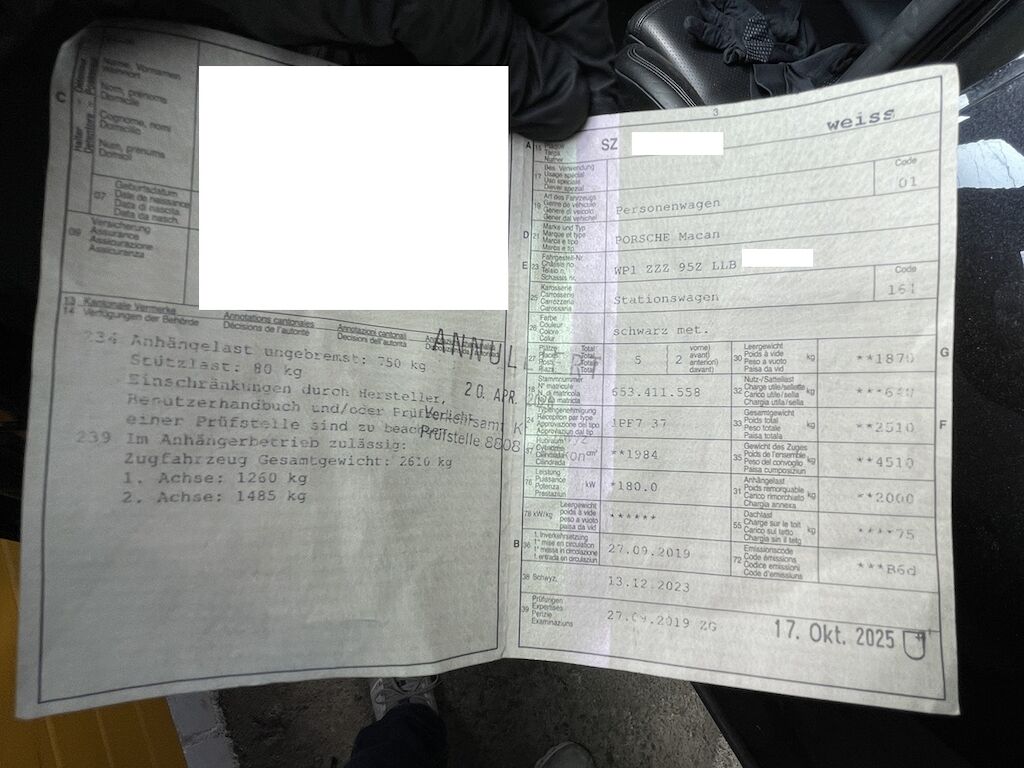 C
Halter
Name, Vornamen
Wohnort
Nom, prénoms
Domicile
Cognome, nomi
Domicilio
Num, prenums
Domicil
07 Geburtsdatum
Date de naissance
Data di nascita
Data da nasch.
09 Versicherung
Assurance
Assicurazione
Assicuranza
13 Kantonale Vermerke Annotations cantonales Annotazioni cantonali
14 Verfügungen der Behörde Décisions de l'autorité Decisioni dell'autorità
234 Anhängelast ungebremst: 750 kg
Stützlast: 80 kg
Einschränkungen durch Hersteller,
Benutzerhandbuch und/oder
einer Prüfstelle sind zu
239 Im Anhängerbetrieb zulässig:
Zugfahrzeug Gesamtgewicht: 2610 kg
1. Achse: 1260 kg
2. Achse: 1485 kg
20. APR.
Verkehrsamt
Prüfstelle 8808
3
weiss
A 15 SZ
17 Bes. Verwendung
Usage spécial
Uso speciale
Diever spezial
Code
01
19 Art des Fahrzeugs
Genre de véhicule
Genere di veicolo
Gener dal vehichel
Personenwagen
D 21 Marke und Typ
Marque et type
Marca e tipo
Marca e tip
PORSCHE Macan
E 23 Fahrgestell-Nr.
Châssis no
Telaio n.
Schassis nr.
WP1 ZZZ 95Z LLB
25 Karosserie
Carrosserie
Carrozzeria
Carossaria
Stationswagen
Code
161
26 Farbe
Couleur
Colore
Colur
schwarz met.
27 Plätze Total
Places Total
5
2 vorne)
avant)
anteriori)
davant)
G 30 Leergewicht
Poids à vide
Peso a vuoto
Paisa da vid
kg
**1870
18 Stammnummer
N° matricule
N. di matricola
653.411.558
32 Nutz-/Sattellast
Charge utile/sellette
Carico utile/sella
Chargia utila/sella
kg
24 Typengenehmigung
Réception par type
Approvazione del tipo
Approvaziun dal tip
1PF7 37
F 33 Gesamtgewicht
Poids total
Peso totale
Paisa totala
kg
**2510
37 Hubraum
Cylindrée
Cilindrata
Cilindrada
cm³
**1984
35 Gewicht des Zuges
Poids de l'ensemble
Peso del convoglio
Paisa cumposiziun
kg
**4510
76 Leistung
Puissance
Potenza
Prestaziun
kW
*180.0
31 Anhängelast
Poids remorquable
Carico rimorchiato
Chargia annexa
kg
**2000
78 kW/kg
Leergewicht
poids à vide
peso a vuoto
paisa da vid
******
55 Dachlast
Charge sur le toit
Carico sul tetto
Chargia sin il tetg
kg
****75
B 36 1. Inverkehrsetzung
1re mise en circulation
1a messa in circolazione
1. entrada en circulaziun
27.09.2019
72 Emissionscode
Code émissions
Codice emissioni
Code d'emissiuns
***B6d
38 Schwyz,
13.12.2023
39 Prüfungen
Expertises
Perizie
Examinaziuns
27.09.2019 ZG
17. Okt. 2025